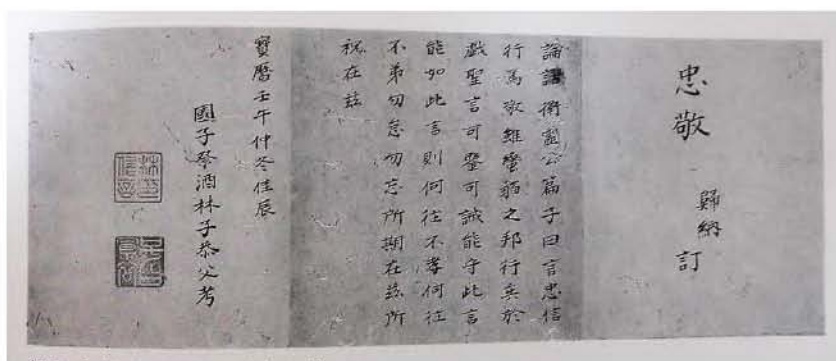 忠敬
歸納
訂
論語衛靈公篇子曰言忠信
行篤敬雖蠻貊之邦行矣於
戲聖言可鑒可誡能守此言
能如此言則何往不孝何往
不弟勿怠勿忘所期在茲所
祝在茲
寶曆壬午仲冬佳辰
國子祭酒林子恭父考